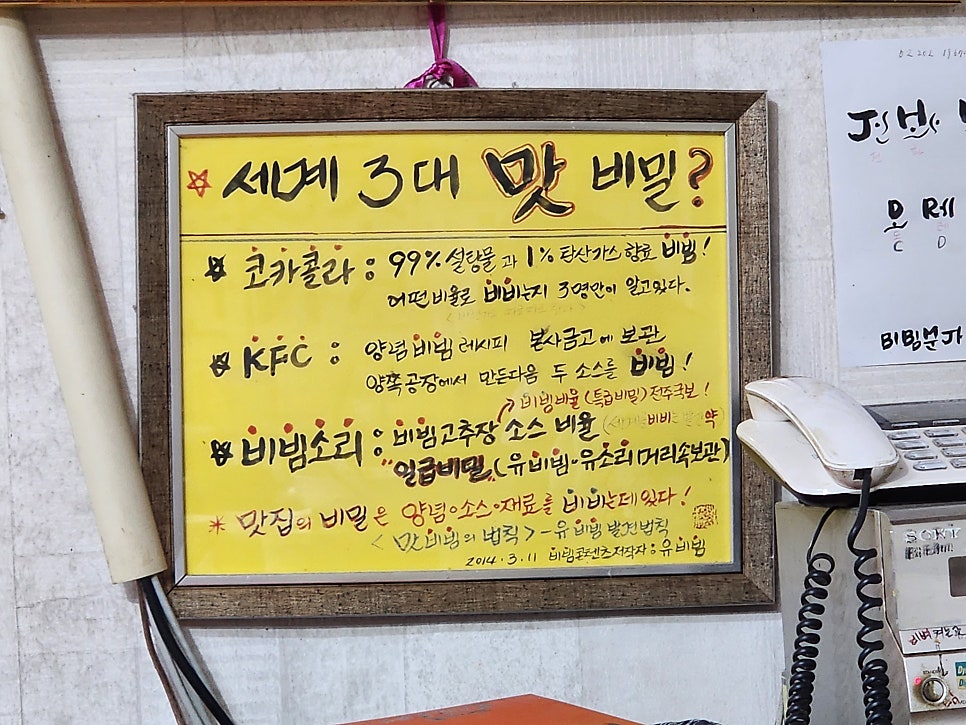 세계 3대 맛 비밀?
코카콜라 : 99% 설탕물과 1% 탄산가스 향료 비빔!
어떤 비율로 비비는지 3명만이 알고있다.
KFC : 양념 비빔 레시피 본사금고에 보관
양쪽공장에서 만든다음 두 소스를 비빔!
비빔비율 (특급비밀) 전주국보!
비빔소리 : 비빔고추장 소스 비율
"일급비밀" (유비빔·유소리 머리속보관)
* 맛집의 비밀은 양념·소스·재료를 비비는데있다!
<맛비빔의 법칙> - 유비빔 발견법칙
2014. 3. 11 비빔콘텐츠저작자 : 유비빔
전봇
도 레
C D
비빔문자